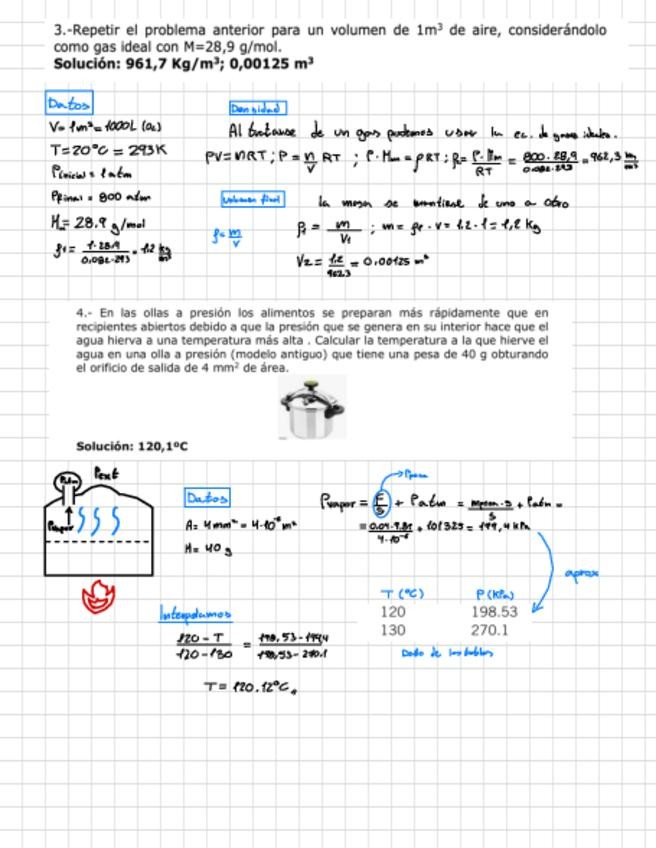 3.-Repetir el problema anterior para un volumen de 1m³ de aire, considerándolo
como gas ideal con M=28,9 g/mol.
Solución: 961,7 Kg/m³; 0,00125 m³
Datos
V= 1m³ = 1000L
T=20ºC = 293K
Pinicial = 1 atm
Pfinal = 800 atm
M = 28.9 g/mol
ρ1 = 1·28.9 / 0,082·293 = 1.2 kg/m³
Densidad
Al tratarse de un gas podemos usar la ec. de gases ideales.
PV = nRT ; P = n/V RT ; P·Mm = ρRT ; ρ2 = P·Mm / RT = 800·28,9 / 0.082·293 = 962,3 kg/m³
Volumen final
ρ = m/V
la masa se mantiene de uno a otro
ρ1 = m / V1 ; m = ρ1 · V = 1.2 · 1 = 1,2 kg
V2 = 1.2 / 962.3 = 0,00125 m³
4.- En las ollas a presión los alimentos se preparan más rápidamente que en
recipientes abiertos debido a que la presión que se genera en su interior hace que el
agua hierva a una temperatura más alta . Calcular la temperatura a la que hierve el
agua en una olla a presión (modelo antiguo) que tiene una pesa de 40 g obturando
el orificio de salida de 4 mm² de área.
Solución: 120,1ºC
Patm
Pext
Pvapor
Datos
A = 4mm² = 4·10⁻⁶ m²
M = 40 g
Ppesa
Pvapor = F/S + Patm = mpesa·g / S + Patm =
= 0.04·9.81 / 4·10⁻⁶ + 101325 = 199,4 kPa
aprox
T (ºC) P (kPa)
120 198.53
130 270.1
Dato de las tablas
Interpolamos
120 - T / 120 - 130 = 198,53 - 199,4 / 198,53 - 270.1
T = 120.12ºC